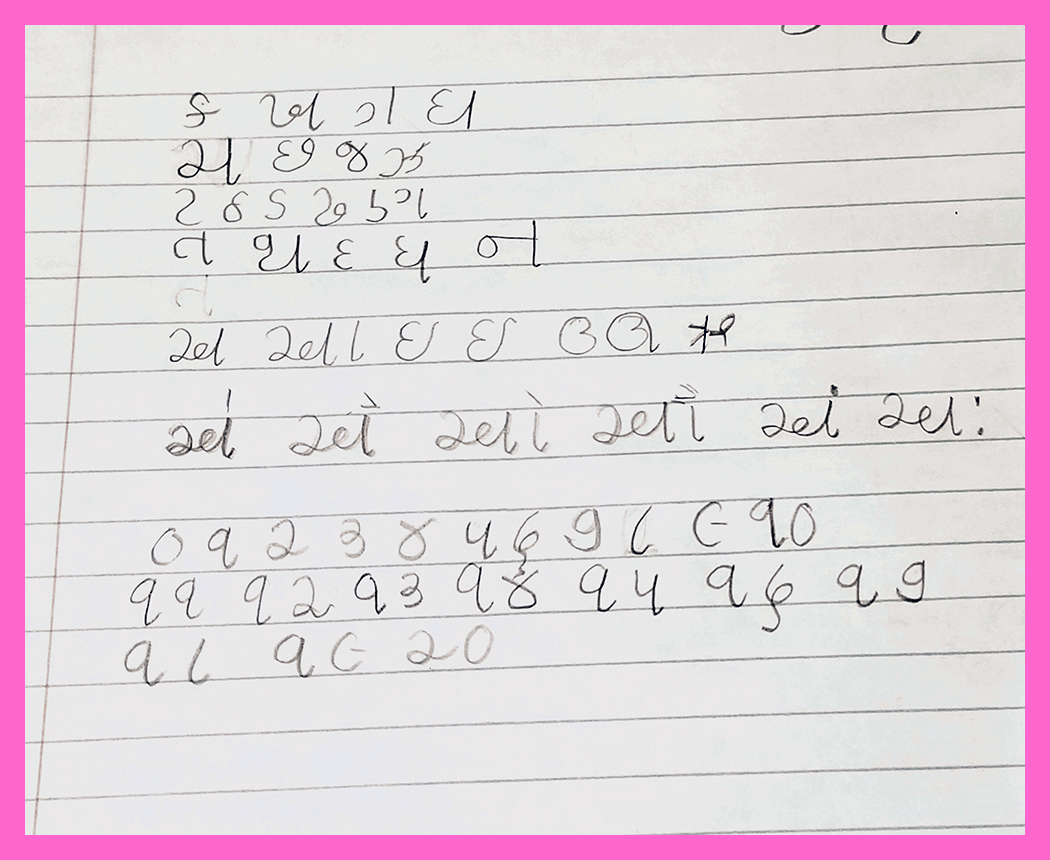 ક ખ ગ ઘ
ચ છ જ ઝ
ટ ઠ ડ ઢ ણ
ત થ દ ધ ન
ત
અ આ ઇ ઈ ઉ ઊ ઋ
એ ઐ ઓ ઔ અં અઃ
૦ ૧ ૨ ૩ ૪ ૫ ૬ ૭ ૮ ૯ ૧૦
૧૧ ૧૨ ૧૩ ૧૪ ૧૫ ૧૬ ૧૭
૧૮ ૧૯ ૨૦